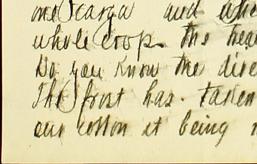 and
whole crop. the hea
Do you know the dire
The frost has taken
our cotton it being